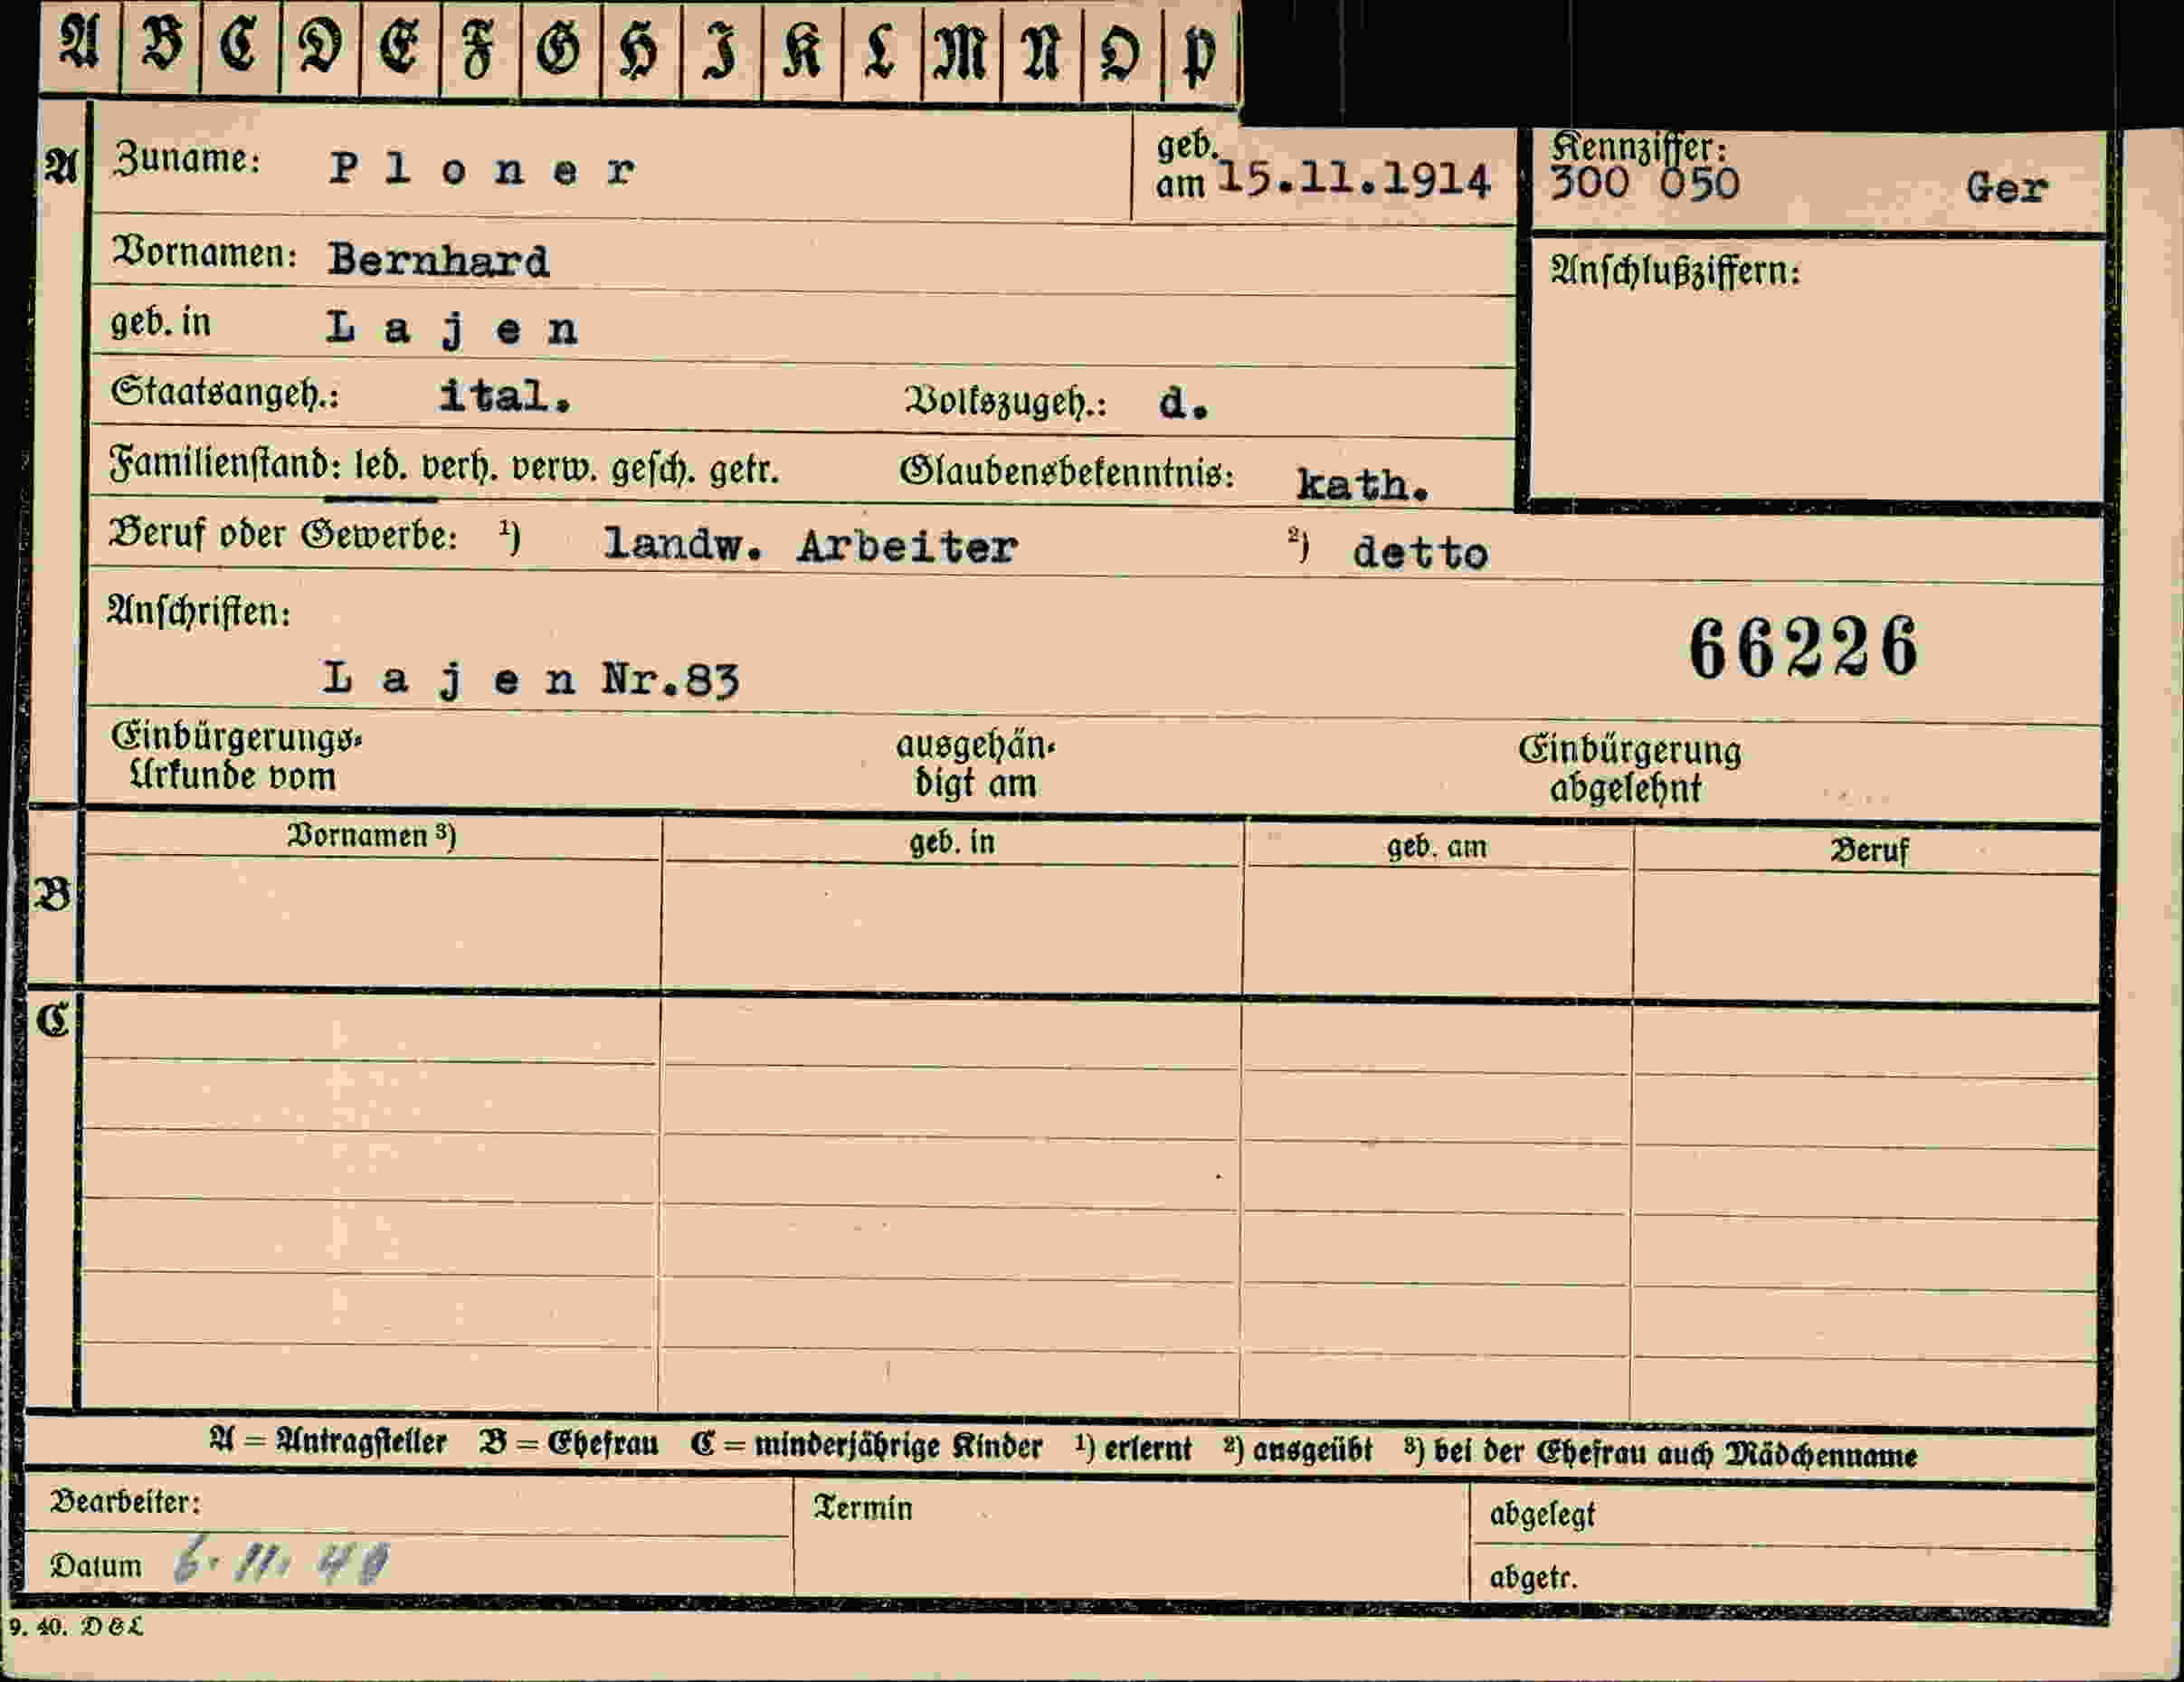 A B C D E F G H I K L M N O P
A Zuname: Ploner geb. am 15.11.1914 Kennziffer: 300 050 Ger
Vornamen: Bernhard
Anschlußziffern:
geb. in Lajen
Staatsangeh.: ital. Volkszugeh.: d.
Familienstand: led. verh. verw. gesch. getr. Glaubensbekenntnis: kath.
Beruf oder Gewerbe: ¹) landw. Arbeiter ²) detto
Anschriften:
66226
Lajen Nr.83
Einbürgerungs- ausgehän- Einbürgerung
Urkunde vom digt am abgelehnt
Vornamen ³) geb. in geb. am Beruf
B
C
A = Antragsteller B = Ehefrau C = minderjährige Kinder ¹) erlernt ²) ausgeübt ³) bei der Ehefrau auch Mädchenname
Bearbeiter: Termin abgelegt
Datum 6. 11. 40 abgetr.
9. 40. D&L